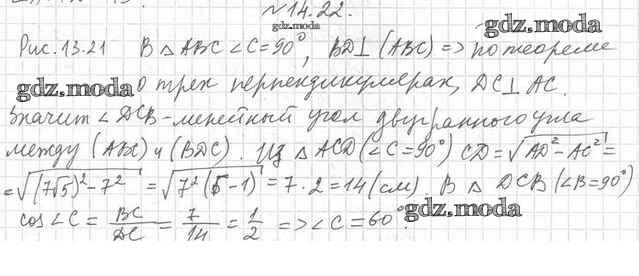 №14.22.
gdz.moda
Рис. 13.21 В △ ABC ∠C=90°, BD⊥(ABC) => по теореме
gdz.moda о трех перпендикулярах, DC⊥AC.
Значит ∠DCB - линейный угол двугранного угла
между (ABC) и (BDC). Из △ ACD (∠C=90°) CD=√AD²-AC²=
=√(7√5)²-7² = √7²(5-1) = 7·2=14 (см). В △ DCB (∠B=90°)
cos∠C = BC/DC = 7/14 = 1/2 => ∠C=60°.
gdz.moda